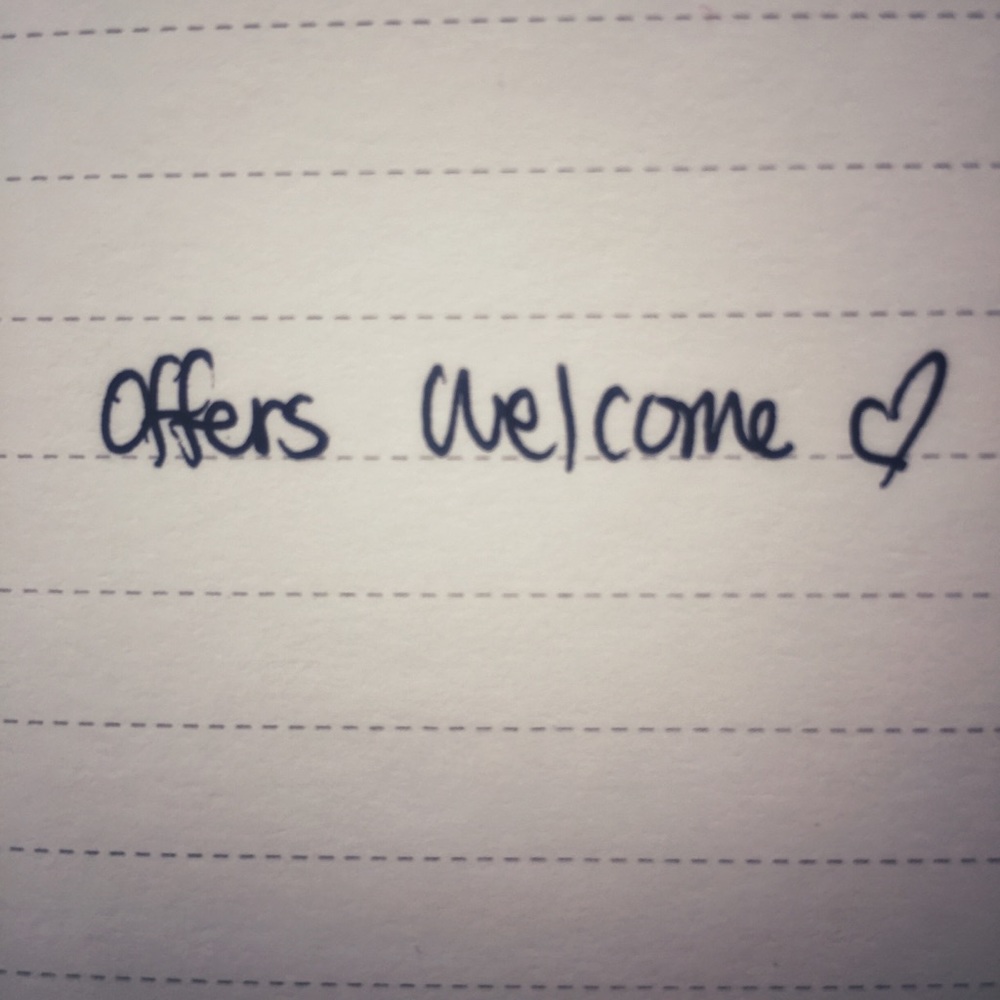 Offers Welcome ♡